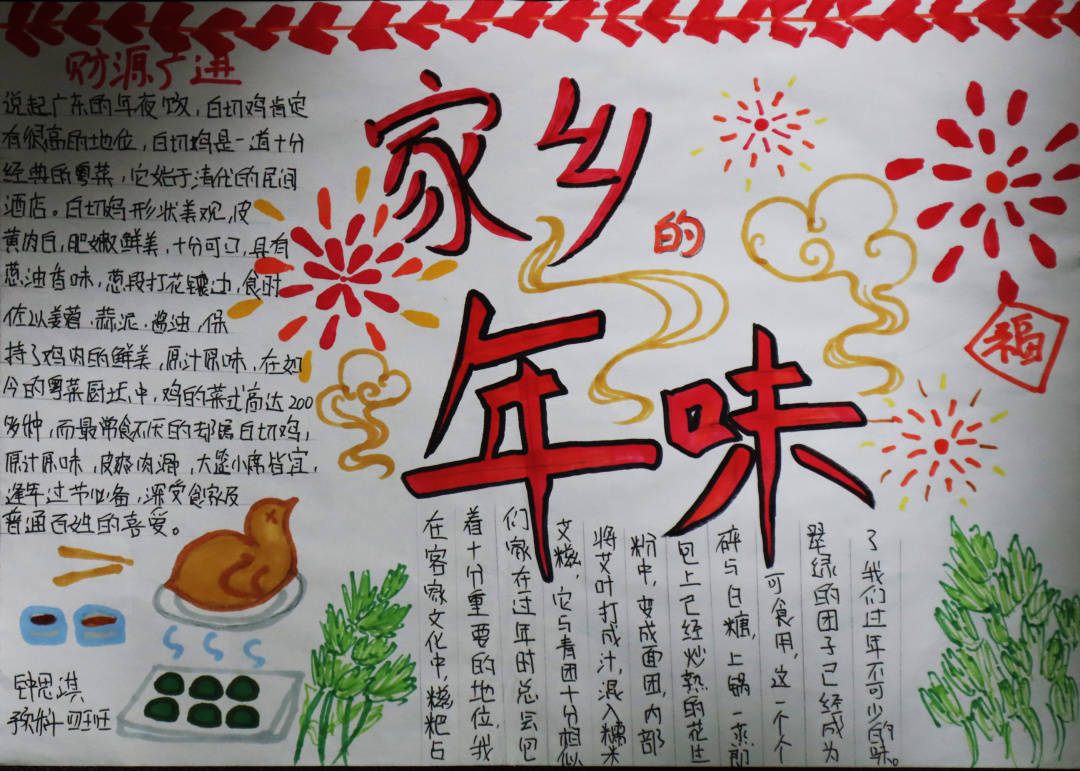 财源广进
说起广东的年夜饭，白切鸡肯定
有很高的地位，白切鸡是一道十分
经典的粤菜，它始于清代的民间
酒店。白切鸡形状美观，皮
黄肉白，肥嫩鲜美，十分可口，具有
葱油香味，葱段打花镶边，食时
佐以姜蓉，蒜泥，酱油，保
持了鸡肉的鲜美，原汁原味，在如
今的粤菜厨坛中，鸡的菜式高达200
多种，而最常食不厌的却属白切鸡，
原汁原味，皮爽肉滑，大筵小席皆宜，
逢年过节必备，深受食家及
普通百姓的喜爱。
家乡
的
年味
福
在客家文化中，糍粑占
着十分重要的地位，我
们家在过年时总会包
艾糍，它与青团十分相似
将艾叶打成汁，混入糯米
粉中，变成面团，内部
包上已经炒熟的花生
碎与白糖，上锅一蒸即
可食用，这一个个
翠绿的团子已经成为
了我们过年不可少的味。
钟思淇
预科四班